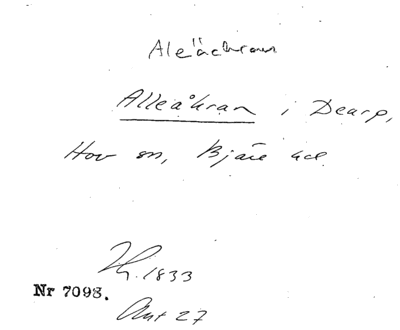 Aleäckran
Alleåkran i Dearp,
Hov sn, Bjäre hd.
1833
Nr 7098.
Akt 27